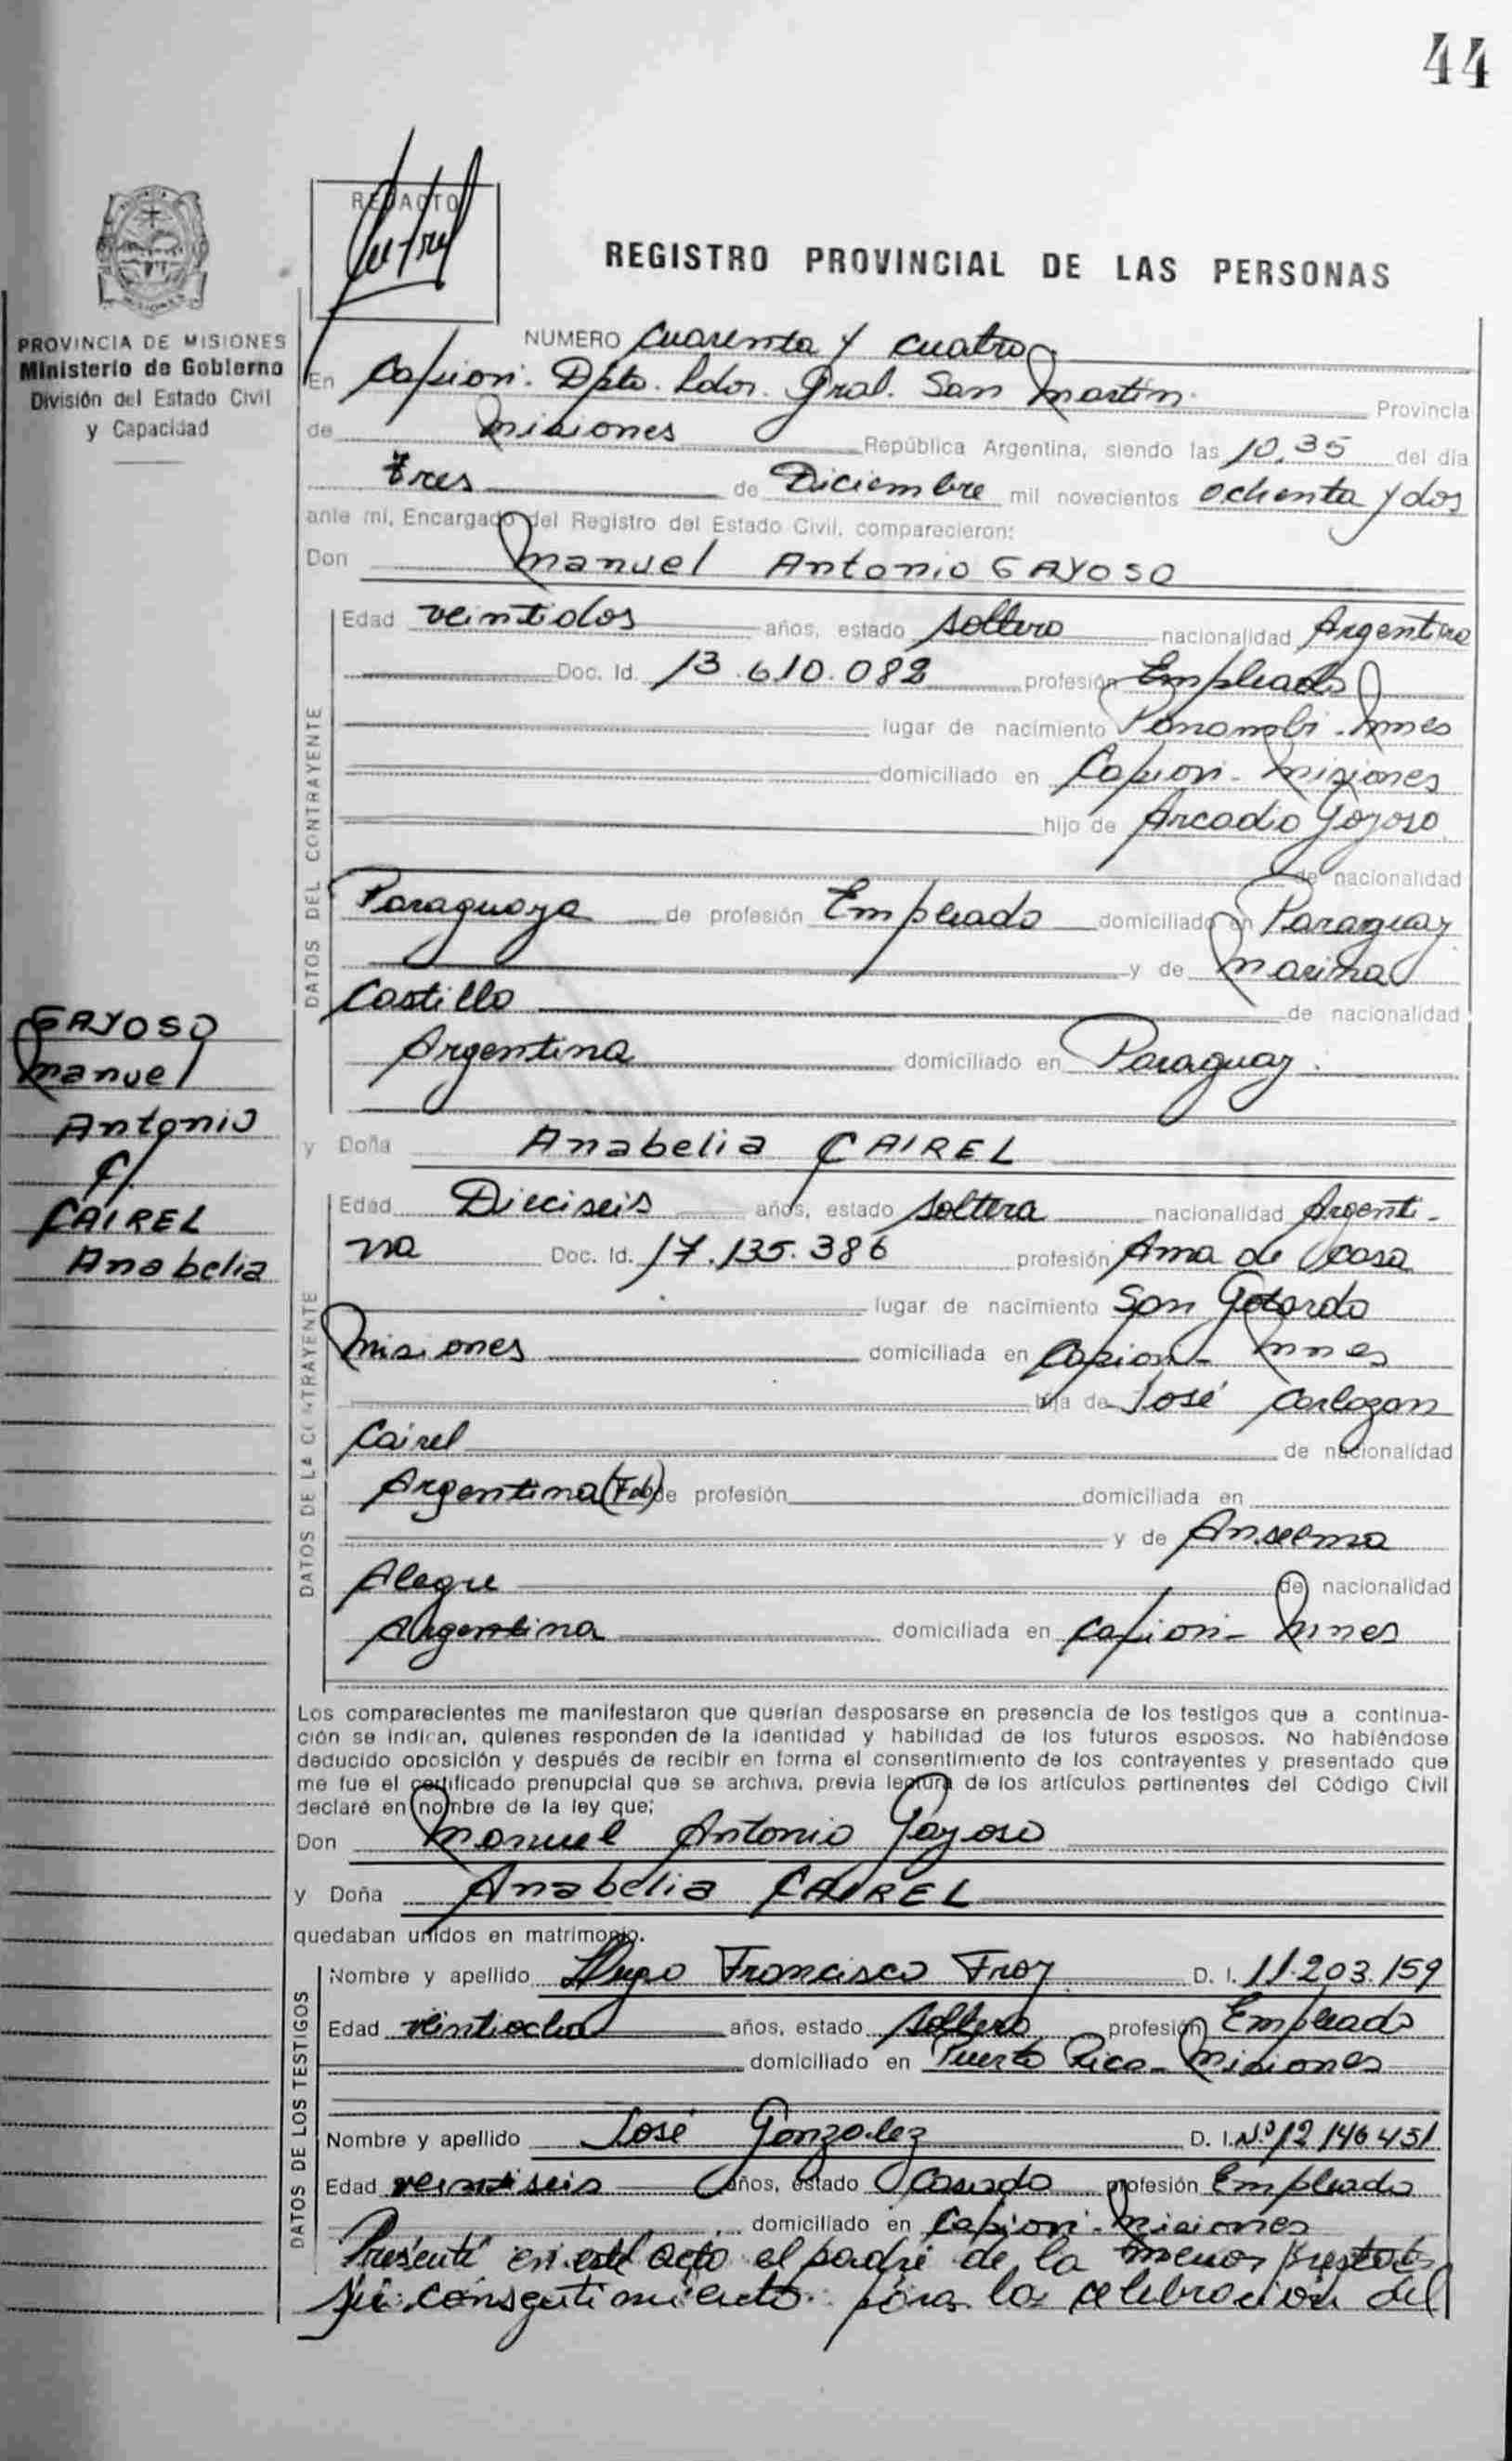 44
REDACTO
REGISTRO PROVINCIAL DE LAS PERSONAS
PROVINCIA DE MISIONES
Ministerio de Gobierno
División del Estado Civil
y Capacidad
NUMERO Cuarenta y cuatro
En Capiovi. Dpto. Ldor. Gral. San Martín. Provincia
de Misiones República Argentina, siendo las 10,35 del día
tres de Diciembre mil novecientos ochenta y dos
ante mí, Encargado del Registro del Estado Civil, comparecieron:
Don Manuel Antonio GAYOSO
Edad veintidos años, estado soltero nacionalidad Argentina
Doc. Id. 13.610.082 profesión Empleado
lugar de nacimiento Panambi - Mnes
domiciliado en Capiovi - Misiones
hijo de Arcadio Gayoso
de nacionalidad
Paraguaya de profesión Empleado domiciliado en Paraguay
y de Marina
Castillo de nacionalidad
Argentina domiciliado en Paraguay.
DATOS DEL CONTRAYENTE
GAYOSO
Manuel
Antonio
c/.
CAIREL
Anabelia
y Doña Anabelia CAIREL
Edad Dieciseis años, estado soltera nacionalidad Argenti-
na Doc. Id. 17.135.386 profesión Ama de casa
lugar de nacimiento San Gotardo
Misiones domiciliada en Capiovi - Mnes
hija de José
Cairel de nacionalidad
Argentina de profesión domiciliada en
y de Anselma
Alegre de nacionalidad
Argentina domiciliada en Capiovi - Mnes
DATOS DE LA CONTRAYENTE
Los comparecientes me manifestaron que querían desposarse en presencia de los testigos que a continua-
ción se indican, quienes responden de la identidad y habilidad de los futuros esposos. No habiéndose
deducido oposición y después de recibir en forma el consentimiento de los contrayentes y presentado que
me fue el certificado prenupcial que se archiva, previa lectura de los artículos pertinentes del Código Civil
declaré en nombre de la ley que;
Don Manuel Antonio Gayoso
y Doña Anabelia CAIREL
quedaban unidos en matrimonio.
Nombre y apellido Hugo Francisco Froy D. I. 11.203.159
Edad veintiocho años, estado soltero profesión Empleado
domiciliado en Puerto Rico - Misiones
Nombre y apellido José Gonzalez D. I. Nº 12 146 451
Edad veintiseis años, estado Casado profesión Empleado
domiciliado en Capiovi - Misiones
DATOS DE LOS TESTIGOS
Presente en este acto el padre de la menor
su consentimiento para la celebración del